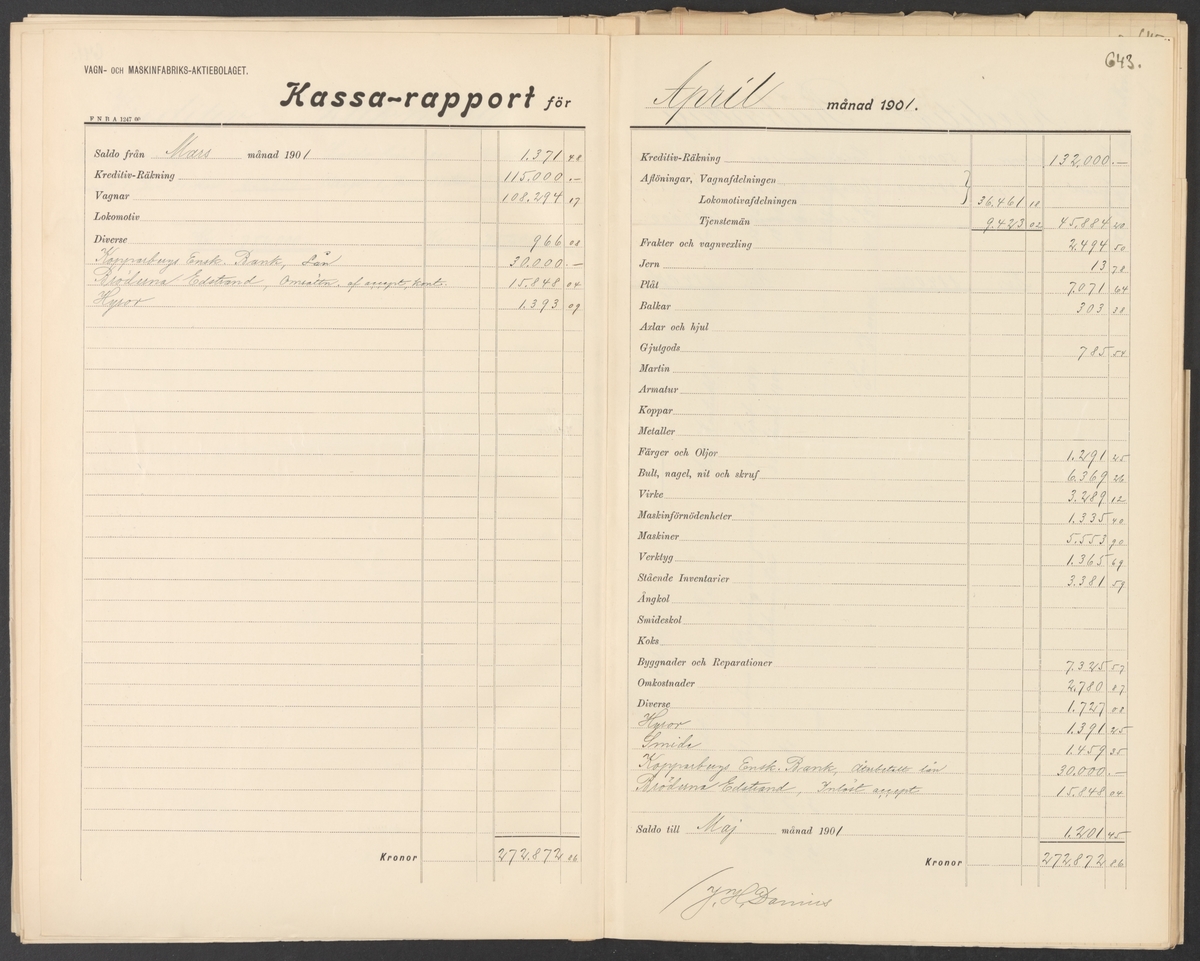 VAGN- OCH MASKINFABRIKS-AKTIEBOLAGET.
Kassa-rapport för
F N R A 1247 00
Saldo från Mars månad 1901 1.371 48
Kreditiv-Räkning 115.000.—
Vagnar 108.294 17
Lokomotiv
Diverse 966 08
Kopparbergs Ensk. Bank, Lån 30.000.—
Bröderna Edstrand, Omsätn. af accept, konto. 15.848 04
Hyror 1.393 09
Kronor 272.872 06
643.
April månad 1901.
Kreditiv-Räkning 132.000.—
Aflöningar, Vagnafdelningen
Lokomotivafdelningen 36.461 18
Tjenstemän 9.423 02 45.884 20
Frakter och vagnvexling 2.494 50
Jern 13 78
Plåt 7.071 64
Balkar 303 38
Axlar och hjul
Gjutgods 785 54
Martin
Armatur
Koppar
Metaller
Färger och Oljor 1.291 25
Bult, nagel, nit och skruf 6.369 26
Virke 3.289 12
Maskinförnödenheter 1.335 40
Maskiner 5.553 90
Verktyg 1.365 69
Stående Inventarier 3.381 59
Ångkol
Smideskol
Koks
Byggnader och Reparationer 7.325 57
Omkostnader 2.780 87
Diverse 1.727 08
Hyror 1.391 25
Smide 1.459 35
Kopparbergs Ensk. Bank, återbetalt lån 30.000.—
Bröderna Edstrand, Inlöst accept 15.848 04
Saldo till Maj månad 1901 1.201 45
Kronor 272.872 06